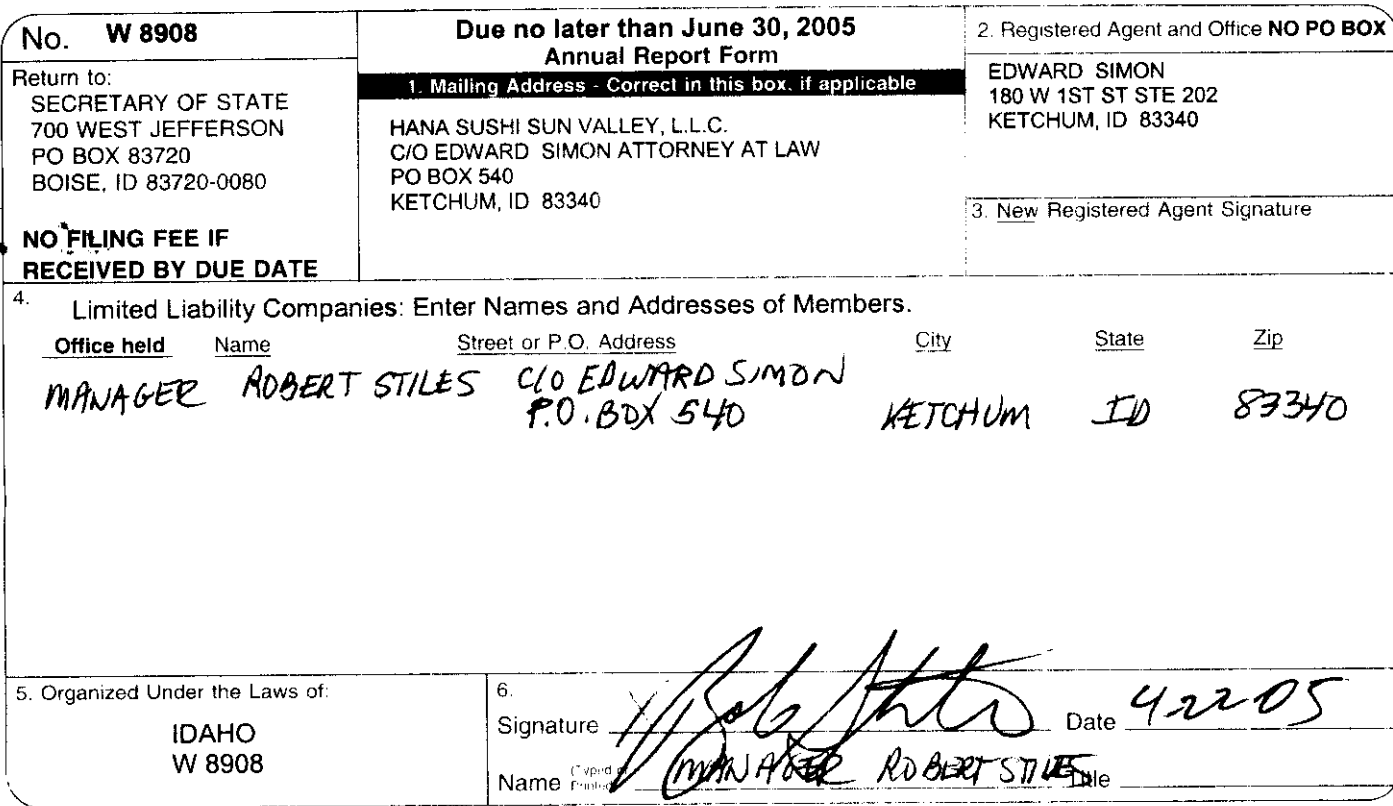 No. W 8908
Return to:
SECRETARY OF STATE
700 WEST JEFFERSON
PO BOX 83720
BOISE, ID 83720-0080
NO FILING FEE IF
RECEIVED BY DUE DATE
Due no later than June 30, 2005
Annual Report Form
1. Mailing Address - Correct in this box, if applicable
HANA SUSHI SUN VALLEY, L.L.C.
C/O EDWARD SIMON ATTORNEY AT LAW
PO BOX 540
KETCHUM, ID 83340
2. Registered Agent and Office NO PO BOX
EDWARD SIMON
180 W 1ST ST STE 202
KETCHUM, ID 83340
3. New Registered Agent Signature
4. Limited Liability Companies: Enter Names and Addresses of Members.
Office held Name Street or P.O. Address City State Zip
MANAGER ROBERT STILES C/O EDWARD SIMON
P.O. BOX 540 KETCHUM ID 83340
5. Organized Under the Laws of:
IDAHO
W 8908
6.
Signature Bob Stiles Date 4-22-05
Name (Typed or Printed) MANAGER ROBERT STILES Title